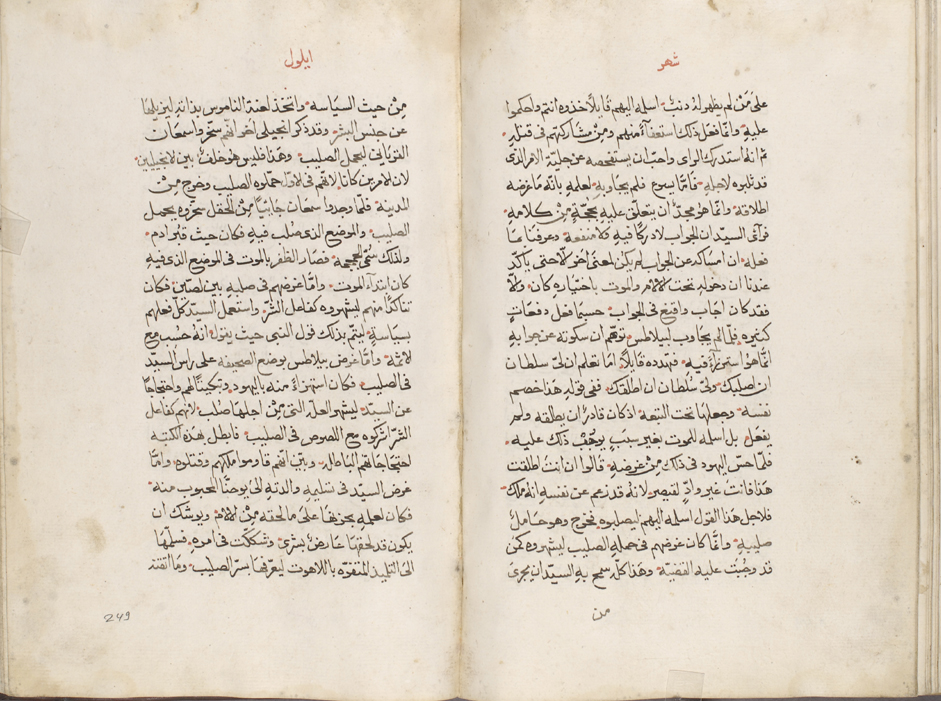 شهر
على مَنْ لم يظهر لهُ ذنبٌ اسلمه اليهم قايلًا خذوه انتم واحكموا
عليهِ وانما فعل ذلك استعفاًء منهم ومِنْ مشاركتهم فى قتلهِ
ثم انهُ استدرك الراى واحب ان يستفحصه عن جليّة الامر الذى
قد ثلبوه لاجلهِ فامّا يسوع فلم يجاوبهِ لعلمهِ بانّه ما غرضه
اطلاقهُ وانما هو مجدٌّ ان يتعلق عليهِ بحجّةٍ مِنْ كلامهِ
فرآى السيّد ان الجواب لا درك فيهِ ولا منفعة وعرفنا بما
فعله ان امساكه عن الجواب لم يكن لمعنًى اخر الّا حتى ياكّد
عندنا ان دخوله تحت الالام والموت باختيارهِ كان والّا
فقد كان اجاب واقنع فى الجواب حسبما فعل دفعاتٍ
كثيره فلما لم يجاوب لبيلاطس توهّم ان سكوته عن جوابهِ
انما هو استهزاًء فيهِ فتهدده قايلًا اما تعلم ان لىَ سلطان
ان اصلبك ولىَ سلطان ان اطلقك ففى قولهِ هذا خصم
نفسهُ وجعلها تحت التبعة اذ كان قادرًا ان يطلقه ولم
يفعل بل اسلمه للموت بغير سببٍ يوجبُ ذلك عليهِ
فلما حسّ اليهود فى ذلك مِنْ غرضهِ قالوا ان انتَ اطلقت
هذا فانت غير وادٍّ لقيصر لانهُ قد زعم عن نفسهِ انه ملك
فلاجل هذا القول اسلمه اليهم ليصلبوه فخرج وهو حاملٌ
صليبهُ وانّما كان غرضهم فى حملهِ الصليب ليشهروه كمَنْ
قد وجبَت عليه القضيّة وهذا كلّه سمح بهِ السيّد ان يجرىَ
من
ايلول
مِنْ حيث السيَاسة واتخذ لعنة الناموس بذاتهِ ليزيلها
عن جنس البشر وقد ذكر انجيلى اخر انهم سخروا سمعان
القوريانى ليحمل الصليب وهذا فليس هو خلفٌ بين الانجيليين
لان الامرين كانا لانهم فى الاول حمّلوه الصليب وخرج مِنْ
المدينة فلمّا وجدوا سمعان جايًا مِنْ الحقل سخّروه بحمل
الصليب والموضع الذى صُلب فيهِ فكان حيث قبر ادم
ولذلك سُمّى الجمجمة فصار الظفر بالموت فى الموضع الذى فيهِ
كان ابتدآء الموت وامّا غرضهم فى صلبهِ بين لصّين فكان
تاكدًا منهم ليشهروه كفاعل الشّر واستعمل السيّد كلّ فعلهم
بسياسةٍ ليتم بذلك قول النبى حيث يقول انهُ حُسب مع
الاثمة وامّا غرض بيلاطس بوضع الصحيفة على راس السيّد
فى الصليب فكان استهزاًء منه باليهود وتبكيتًا لهم واحتجاجًا
عن السيّد ليشهر العلّة التى مِنْ اجلها صُلب لانهم كفاعل
الشّر اشركوه مع اللصوص فى الصليب فابطل بهذهِ الكتبه
احتجاجاتهم الباطله وبيّن انهم قاوموا ملكهم وقتلوه وامّا
غرض السيّد فى تسليمهِ والدتهُ الى يوحنّا المحبوب منهُ
فكان لعلمهِ بحزنها على ما لحقه مِنْ الالام ويوشك ان
يكون قد لحقها عارضٌ بشرىٌ وشككَت فى امرهِ فسلّمها
الى التلميذ المتفوّه باللاهوت ليعرّفها بسرّ الصليب وما اقتنـ
249